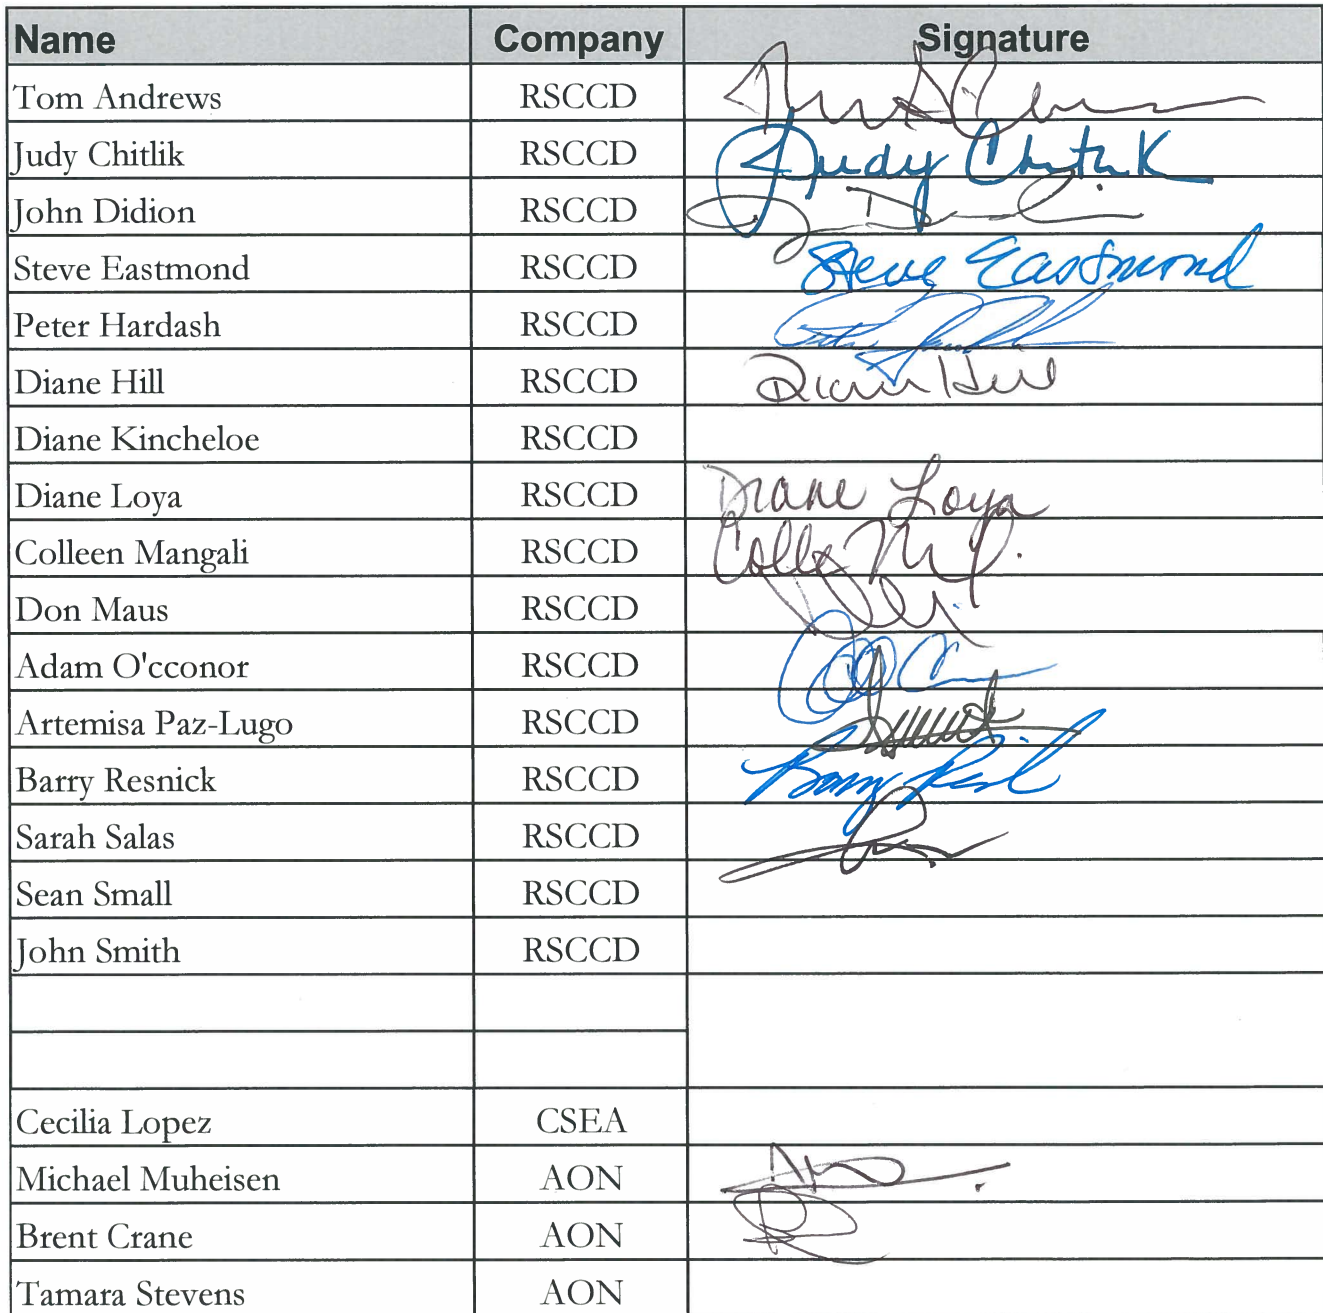 Name Company Signature
Tom Andrews RSCCD
Judy Chitlik RSCCD Judy Chitlik
John Didion RSCCD
Steve Eastmond RSCCD Steve Eastmond
Peter Hardash RSCCD
Diane Hill RSCCD Diane Hill
Diane Kincheloe RSCCD
Diane Loya RSCCD Diane Loya
Colleen Mangali RSCCD
Don Maus RSCCD
Adam O'cconor RSCCD
Artemisa Paz-Lugo RSCCD
Barry Resnick RSCCD
Sarah Salas RSCCD
Sean Small RSCCD
John Smith RSCCD
Cecilia Lopez CSEA
Michael Muheisen AON
Brent Crane AON
Tamara Stevens AON